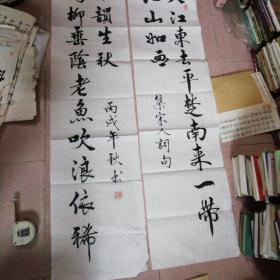 大江東去平楚南来一帶
江山如画
集宋人詞句
柳垂陰老魚吹浪依稀
韻生秋
丙戌年秋书